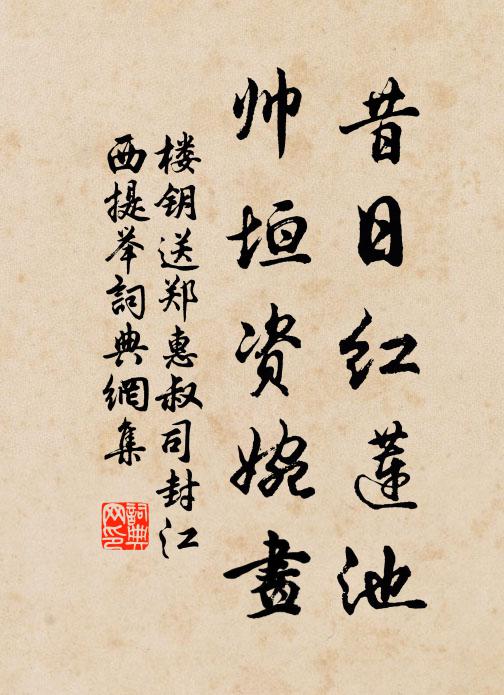 昔日红莲池
帅垣资婉畫
楼钥送郑惠叔司封江
西提举詞典網集
詞典网印